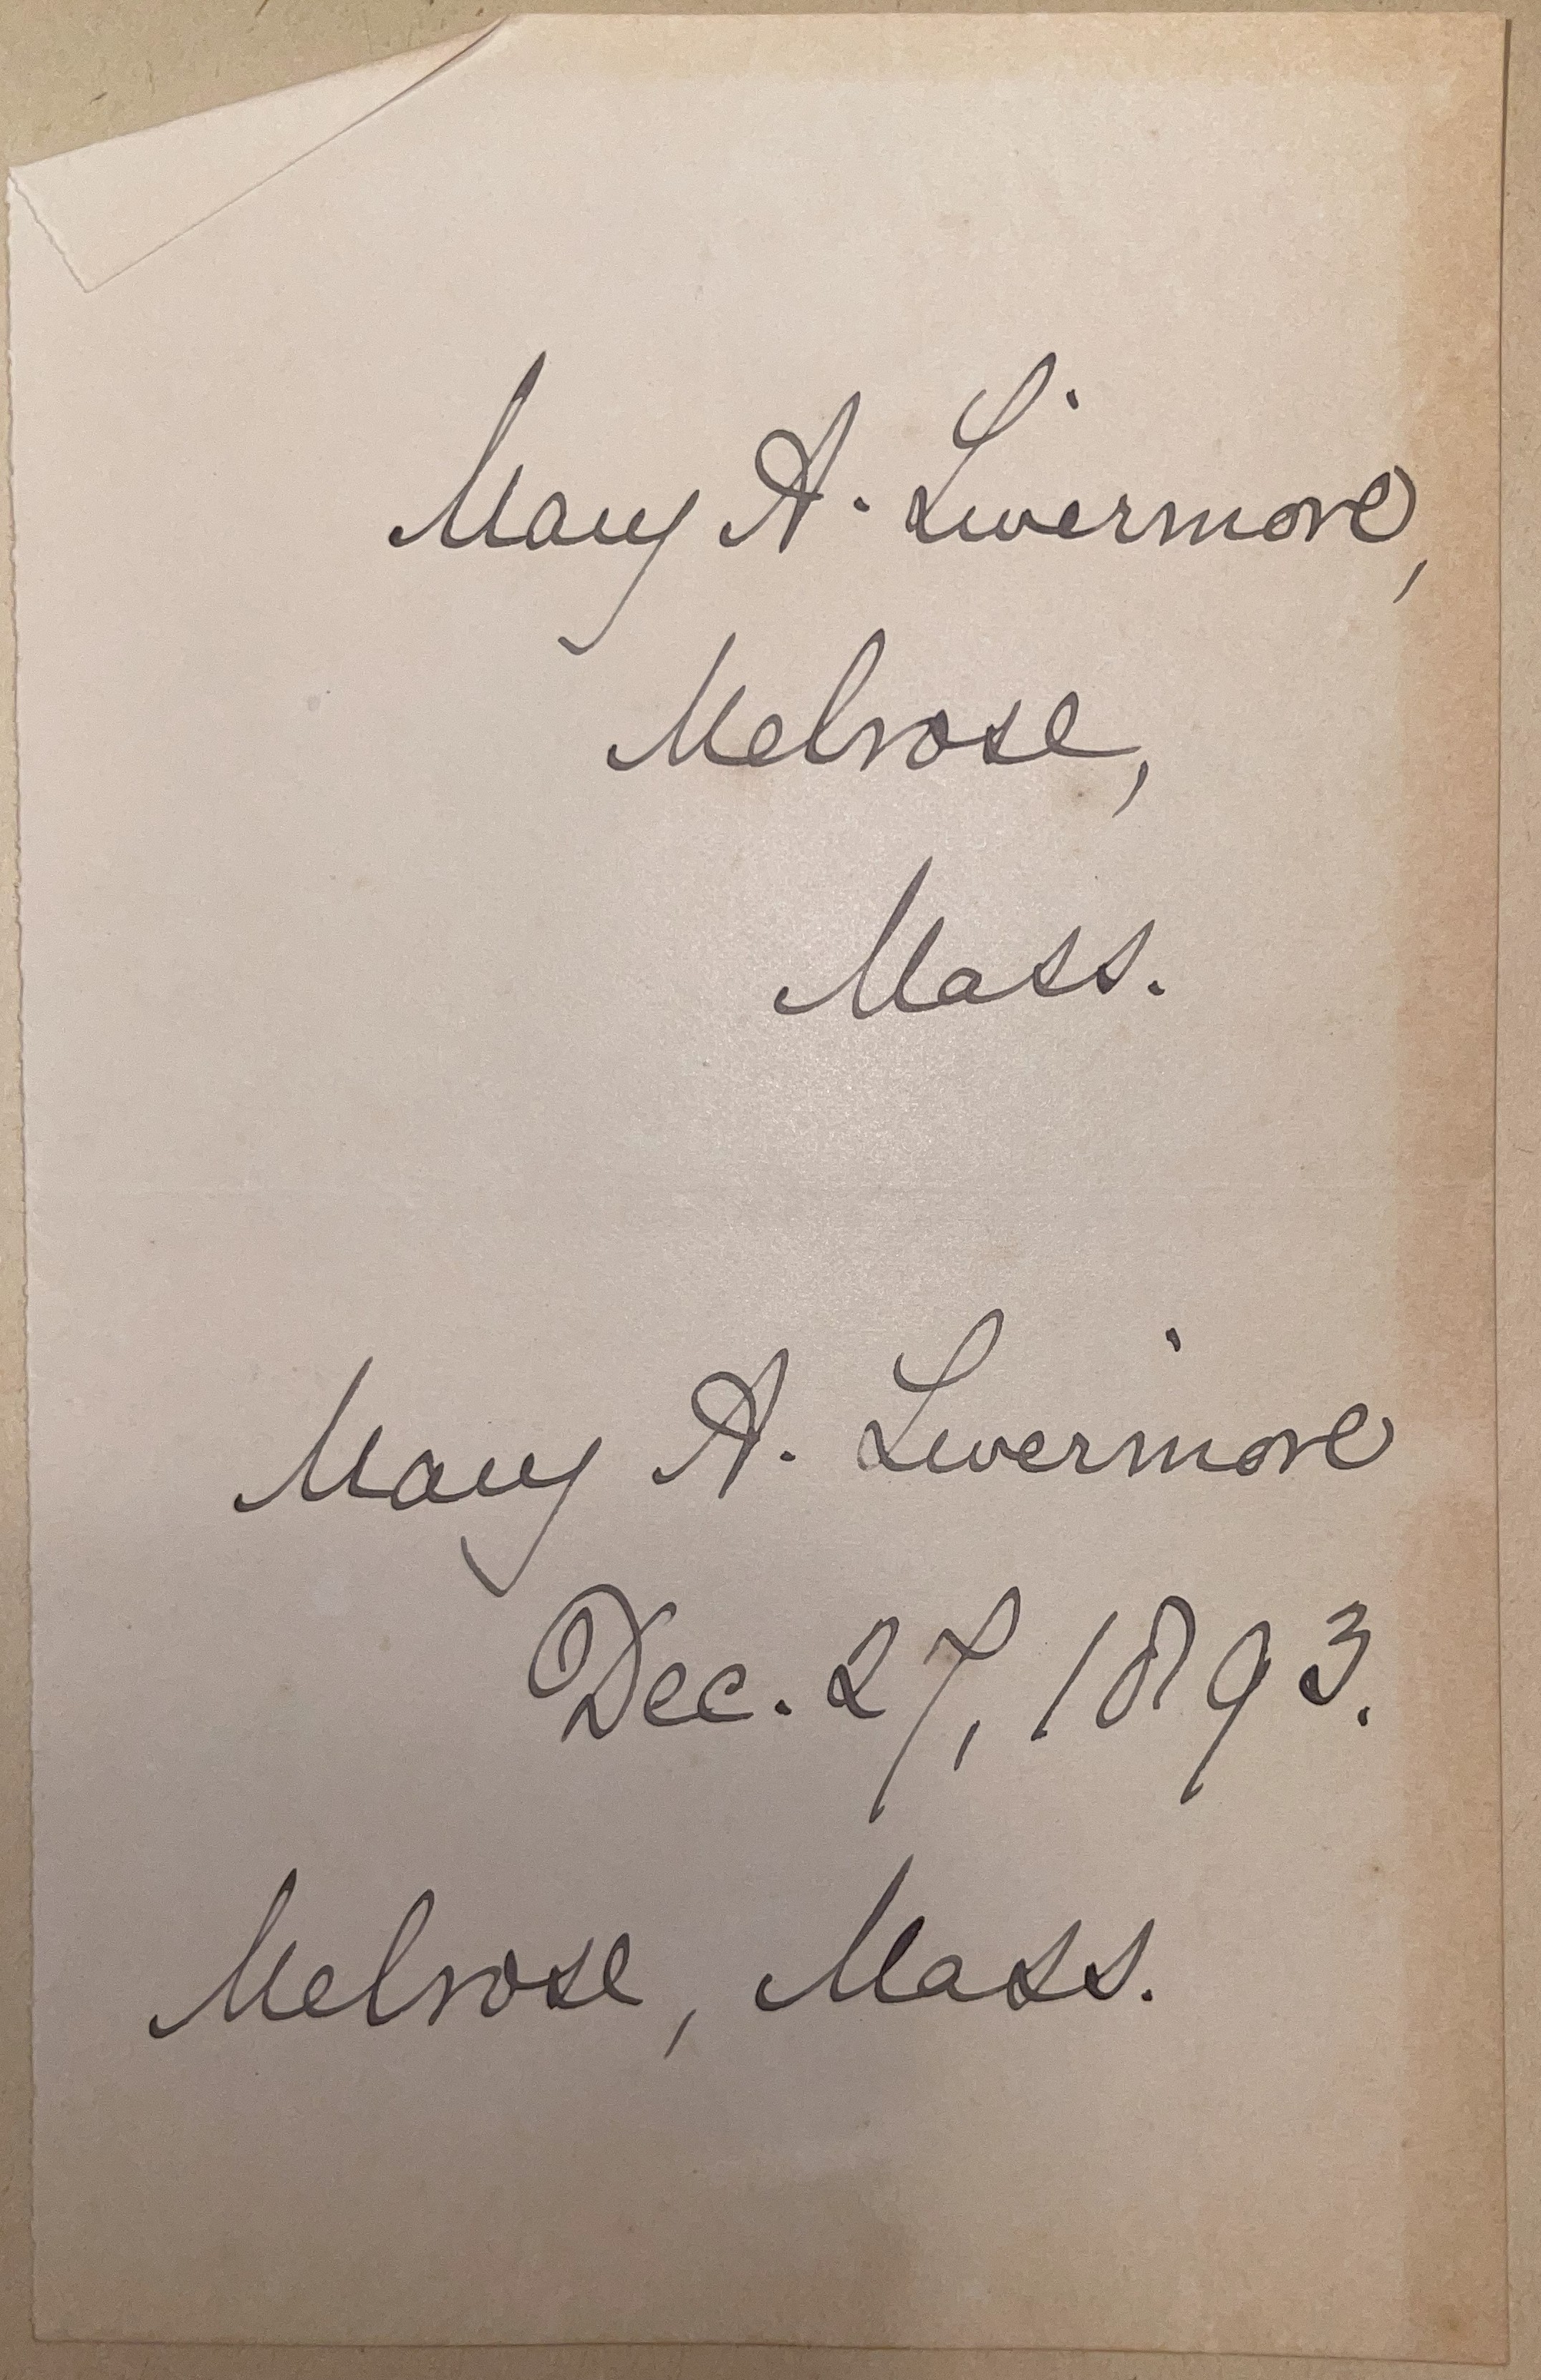 Mary A. Livermore,
Melrose,
Mass.
Mary A. Livermore
Dec. 27, 1893.
Melrose, Mass.